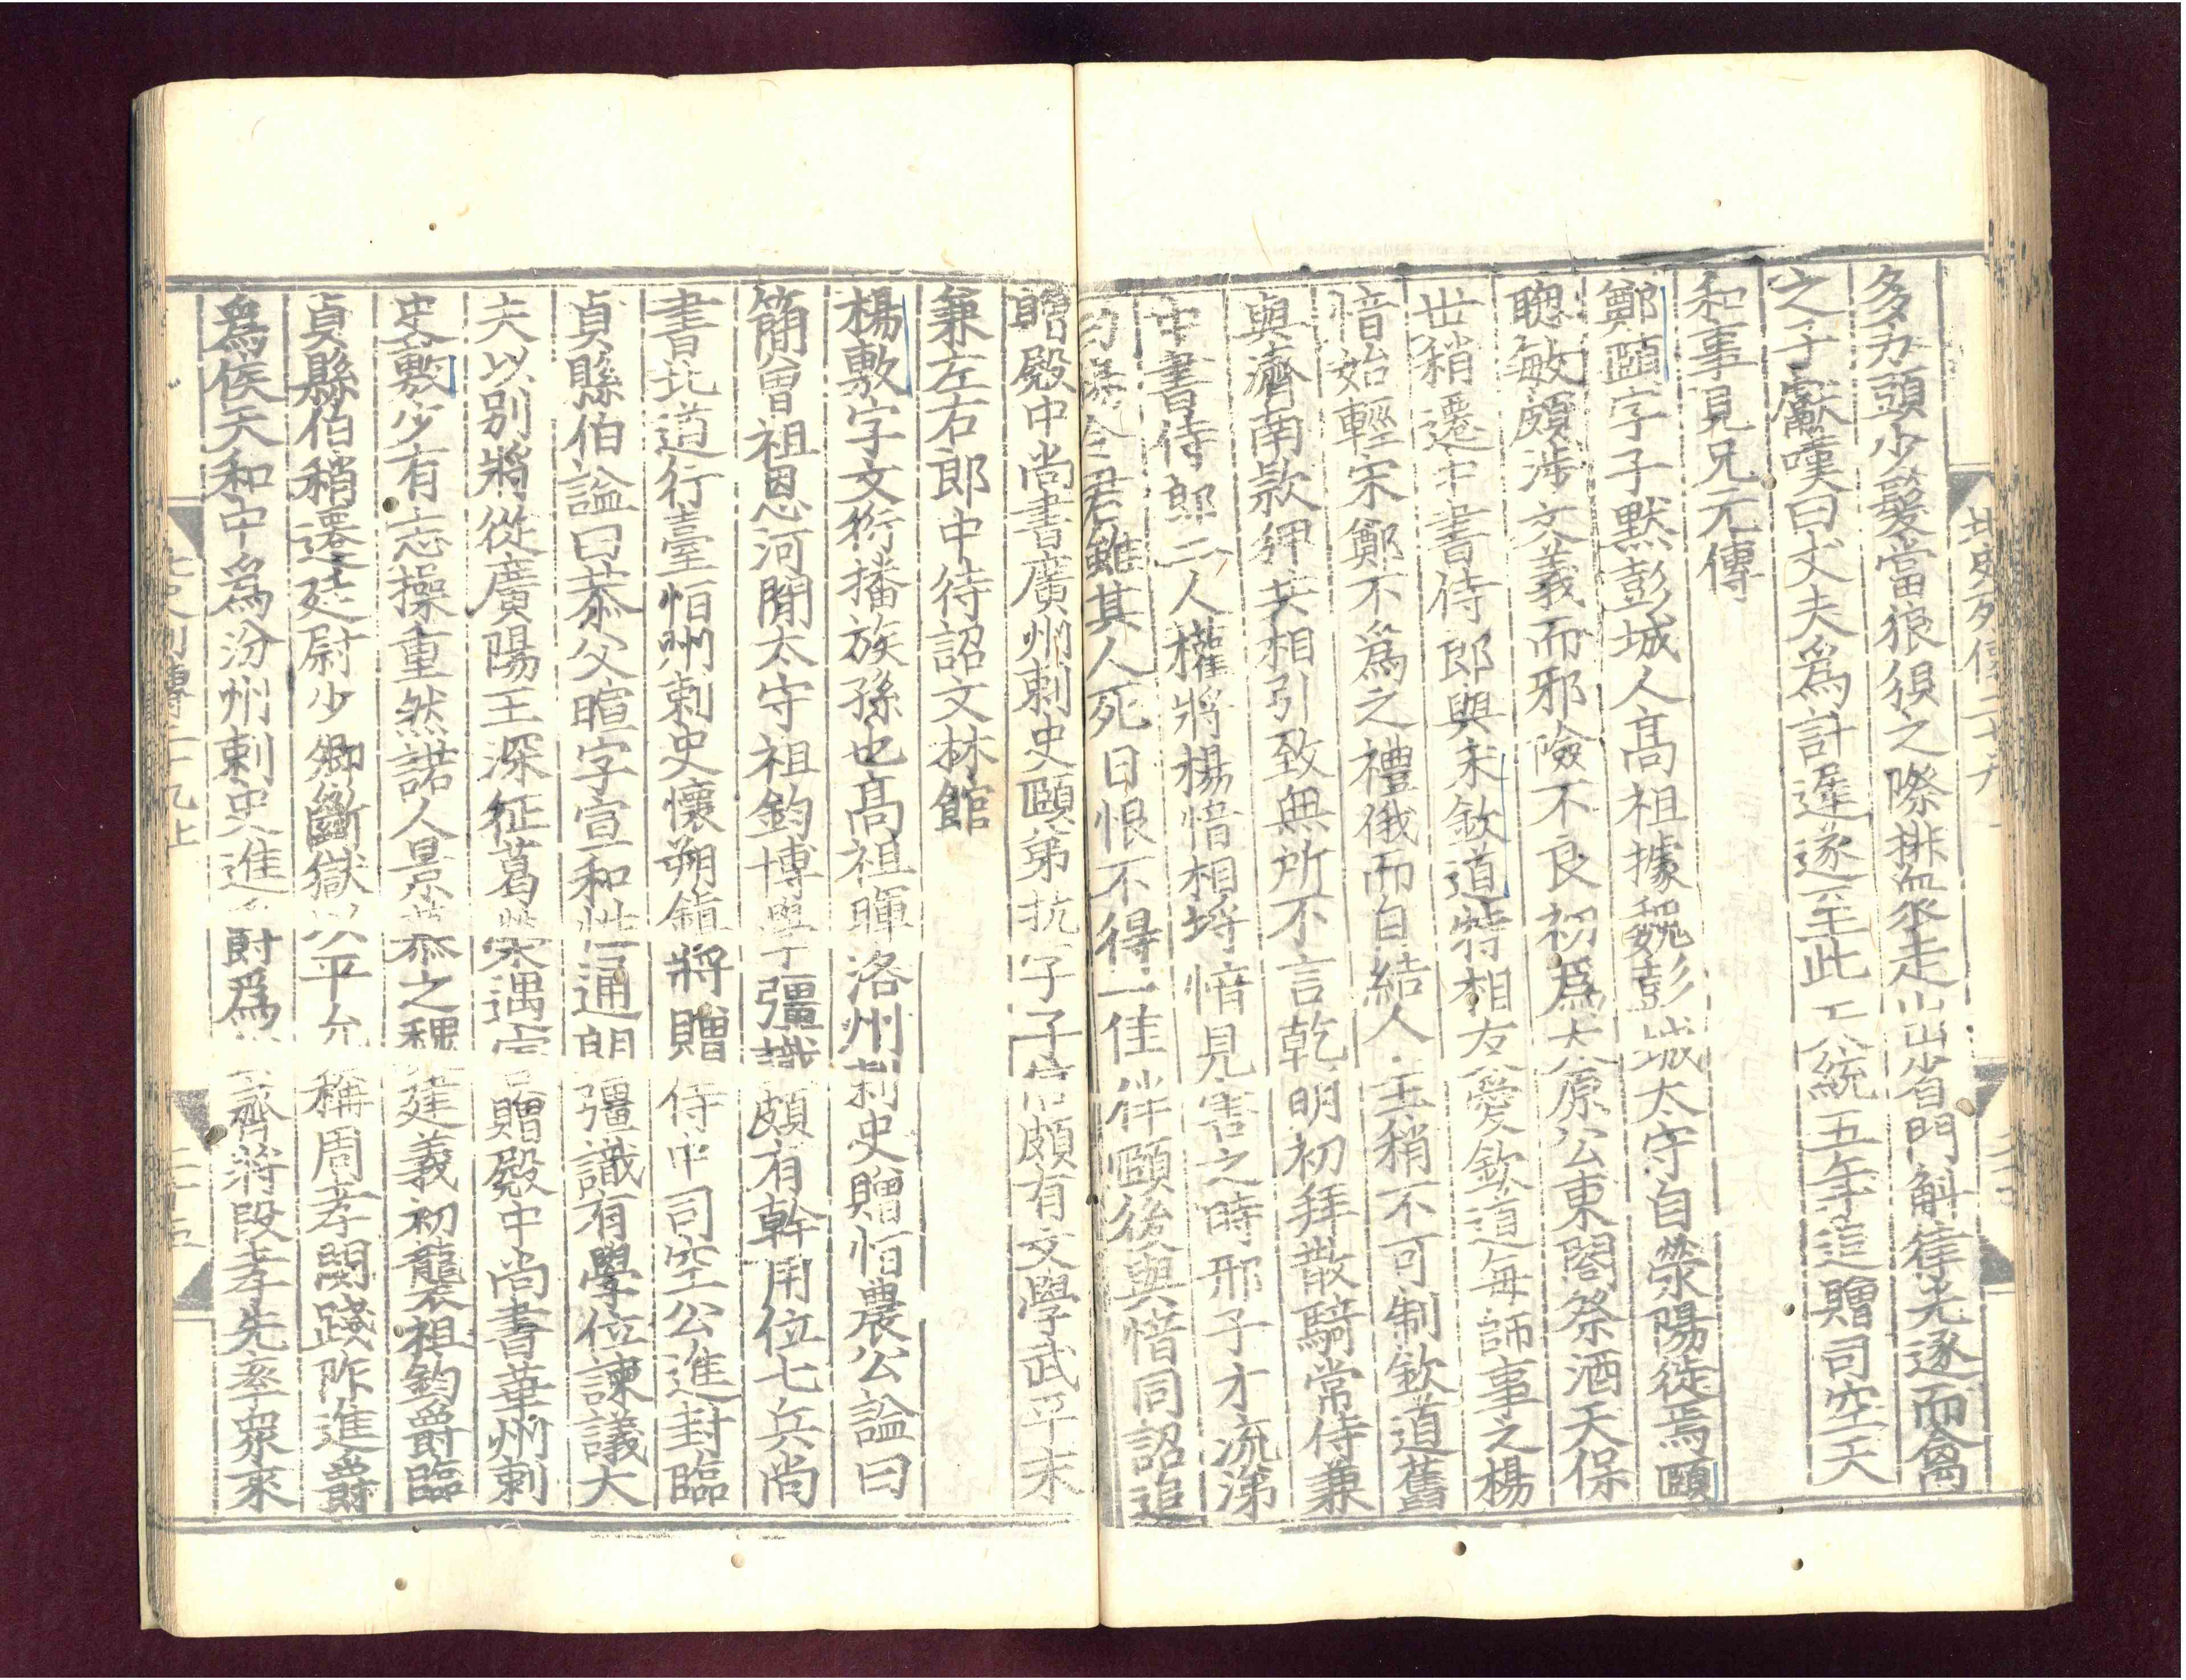 多力頭少髮當狼狽之際排衆走出省門斛律光逐而禽
之子獻嘆曰丈夫爲計遲遂至此天統五年追贈司空天
和事見兄元傳
鄭頤字子默彭城人高祖據魏彭城太守自滎陽徙焉頤
聰敏頗涉文義而邪險不良初爲太原公東閤祭酒天保
世稍遷中書侍郎與宋欽道特相友愛欽道每師事之楊
愔始輕宋鄭不爲之禮俄而自結人主稍不可制欽道舊
與濟南款狎共相引致無所不言乾明初拜散騎常侍兼
中書侍郎二人權將楊愔相埒愔見害之時邢子才流涕
曰楊令君雖其人死日恨不得一佳伴頤後與愔同詔追
贈殿中尚書廣州刺史頤弟抗字子信頗有文學武平末
兼左右郎中待詔文林館
楊敷字文衍播族孫也高祖暉洛州刺史贈恒農公謚曰
簡曾祖恩河閒太守祖鈞博學彊識頗有幹用位七兵尚
書北道行臺恒州刺史懷朔鎮將贈侍中司空公進封臨
貞縣伯謚曰恭父暄字宣和性通朗彊識有學位諫議大
夫以別將從廣陽王深征葛榮遇害贈殿中尚書華州刺
史敷少有志操重然諾人景慕之魏建義初襲祖鈞爵臨
貞縣伯稍遷廷尉少卿斷獄以平允稱周孝閔踐阼進爵
爲侯天和中爲汾州刺史進爵爲 齊將段孝先率衆來